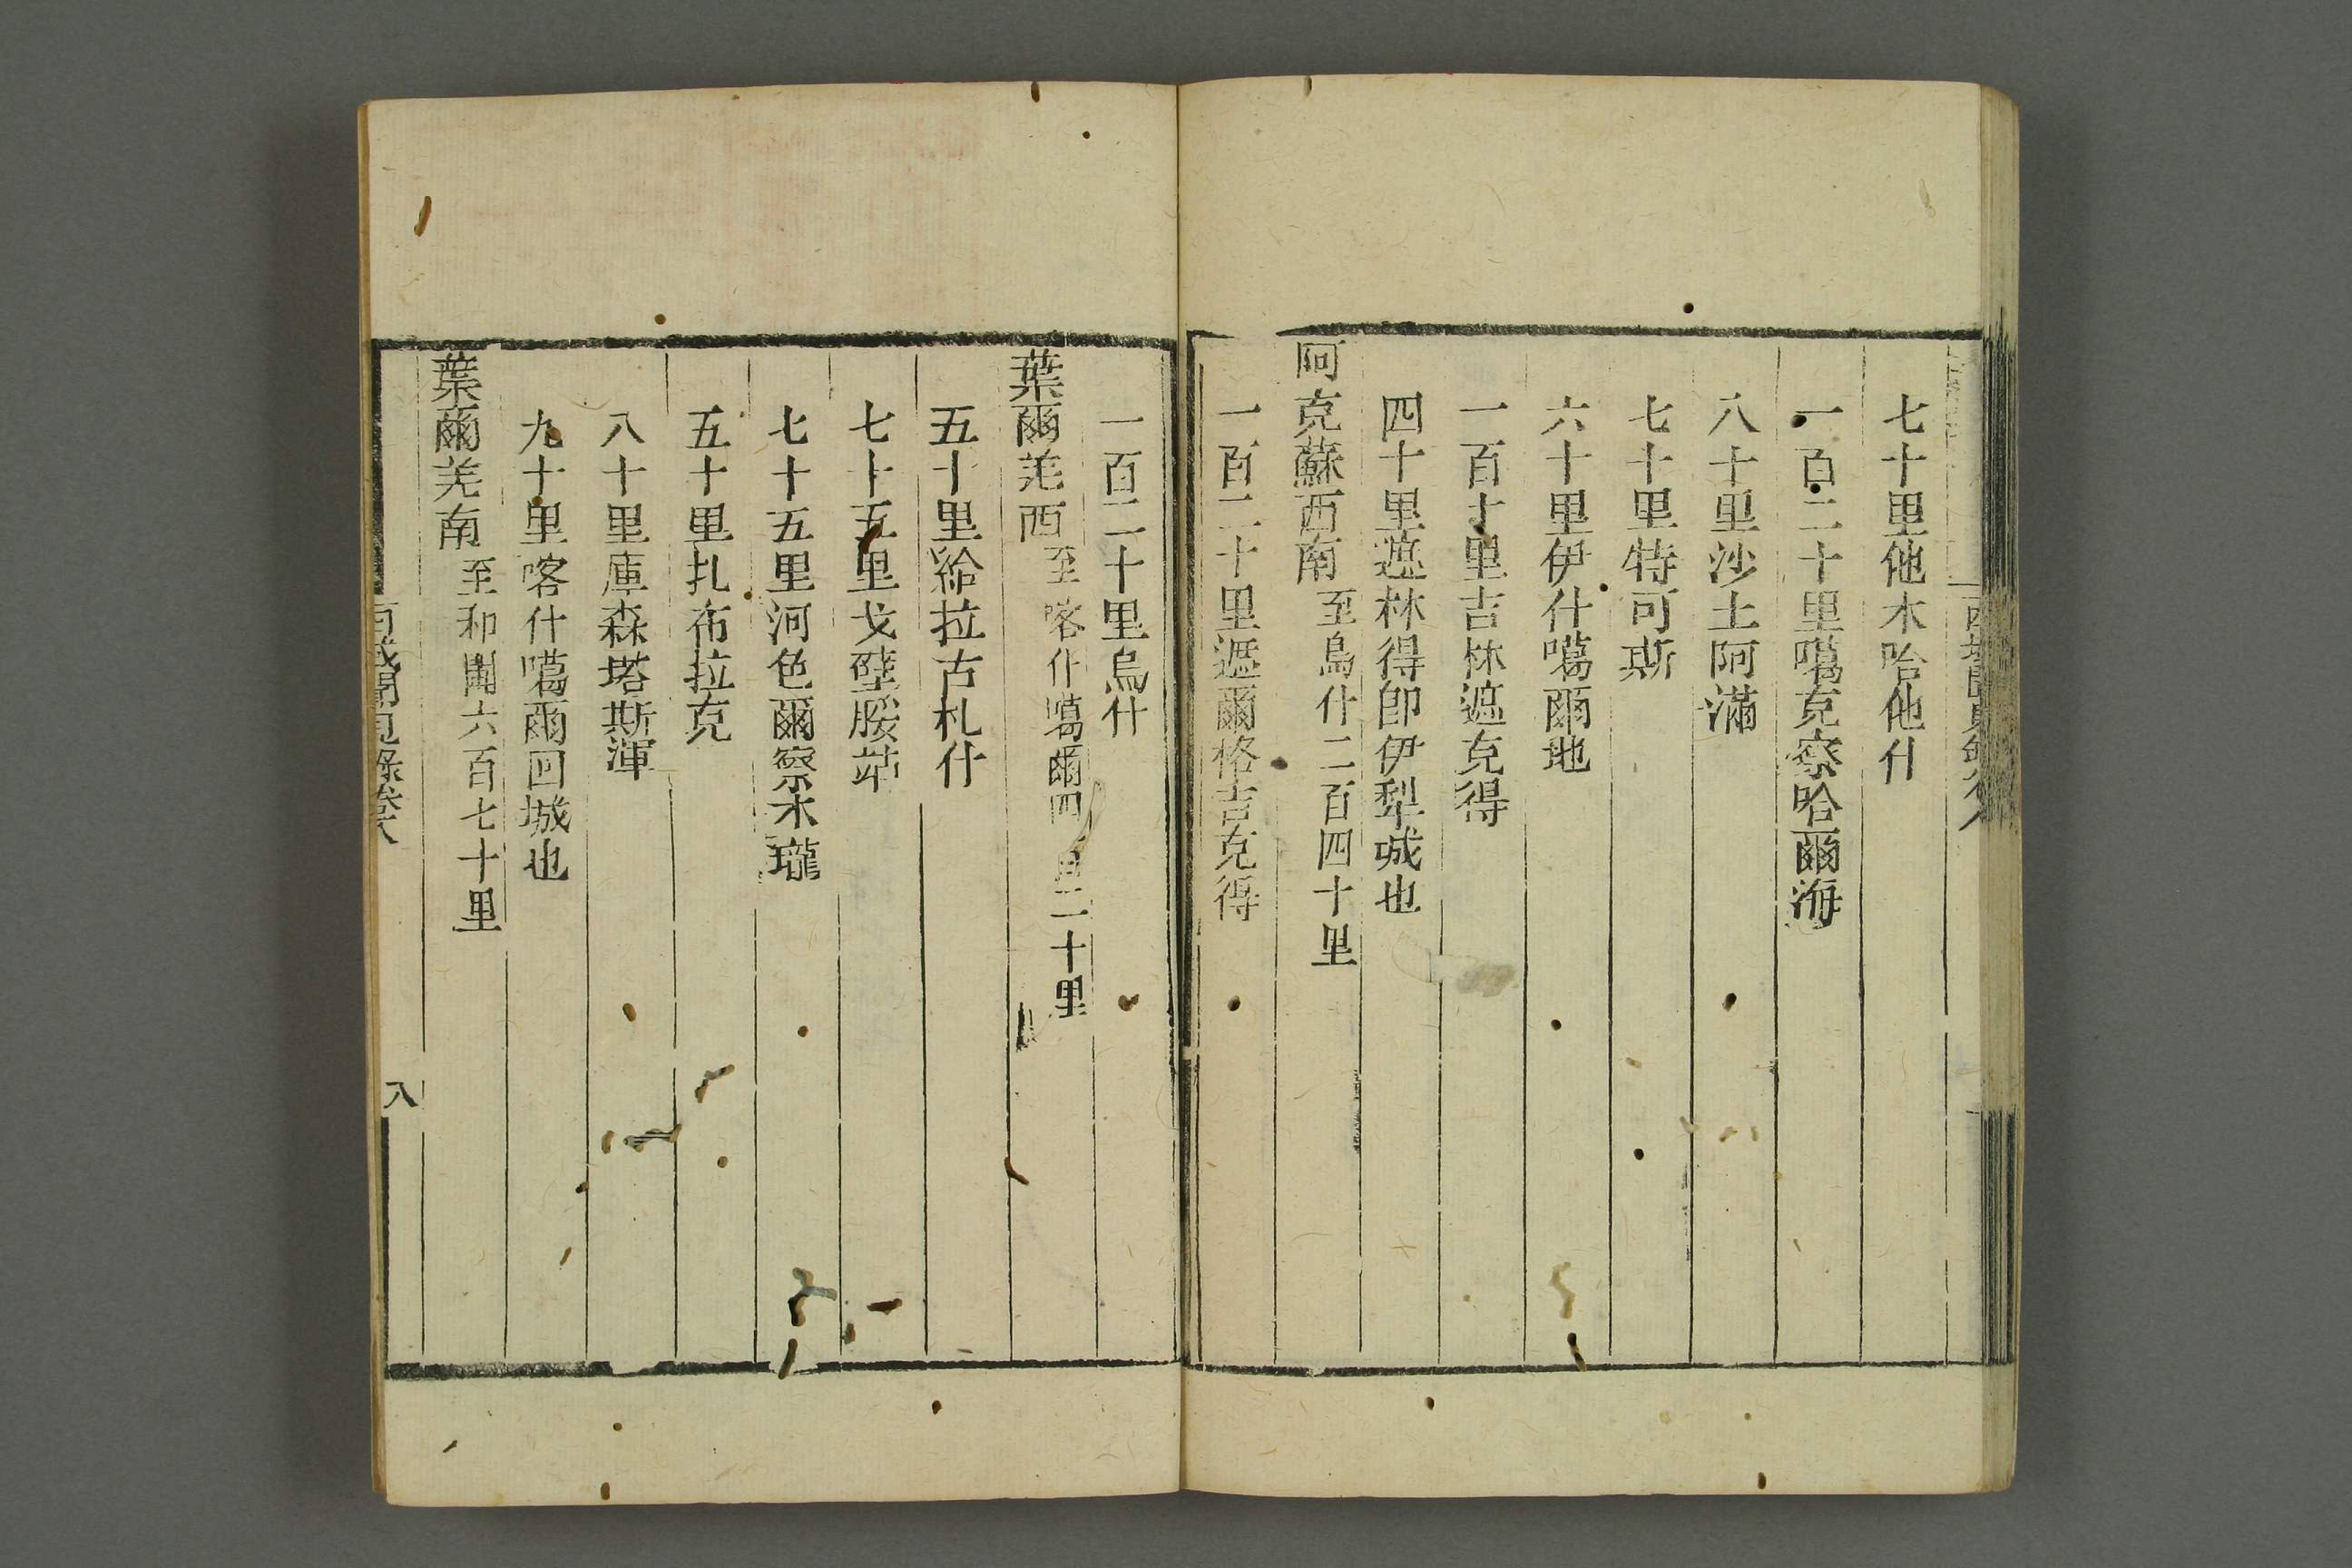 七十里他木哈他什
一百二十里噶克察哈爾海
八十里沙土阿滿
七十里特可斯
六十里伊什噶爾地
一百十里吉林遮克得
四十里遮林得卽伊犁城也
阿克蘇西南至烏什二百四十里
一百二十里遮爾格吉克得
一百二十里烏什
葉爾羌西至喀什噶爾四百二十里
五十里給拉古札什
七十五里戈壁腰站
七十五里河色爾察木瓏
五十里扎布拉克
八十里庫森塔斯渾
九十里喀什噶爾回城也
葉爾羌南至和闐六百七十里
西域聞見錄卷八
八